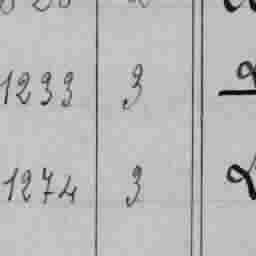 1233 3
1274 3